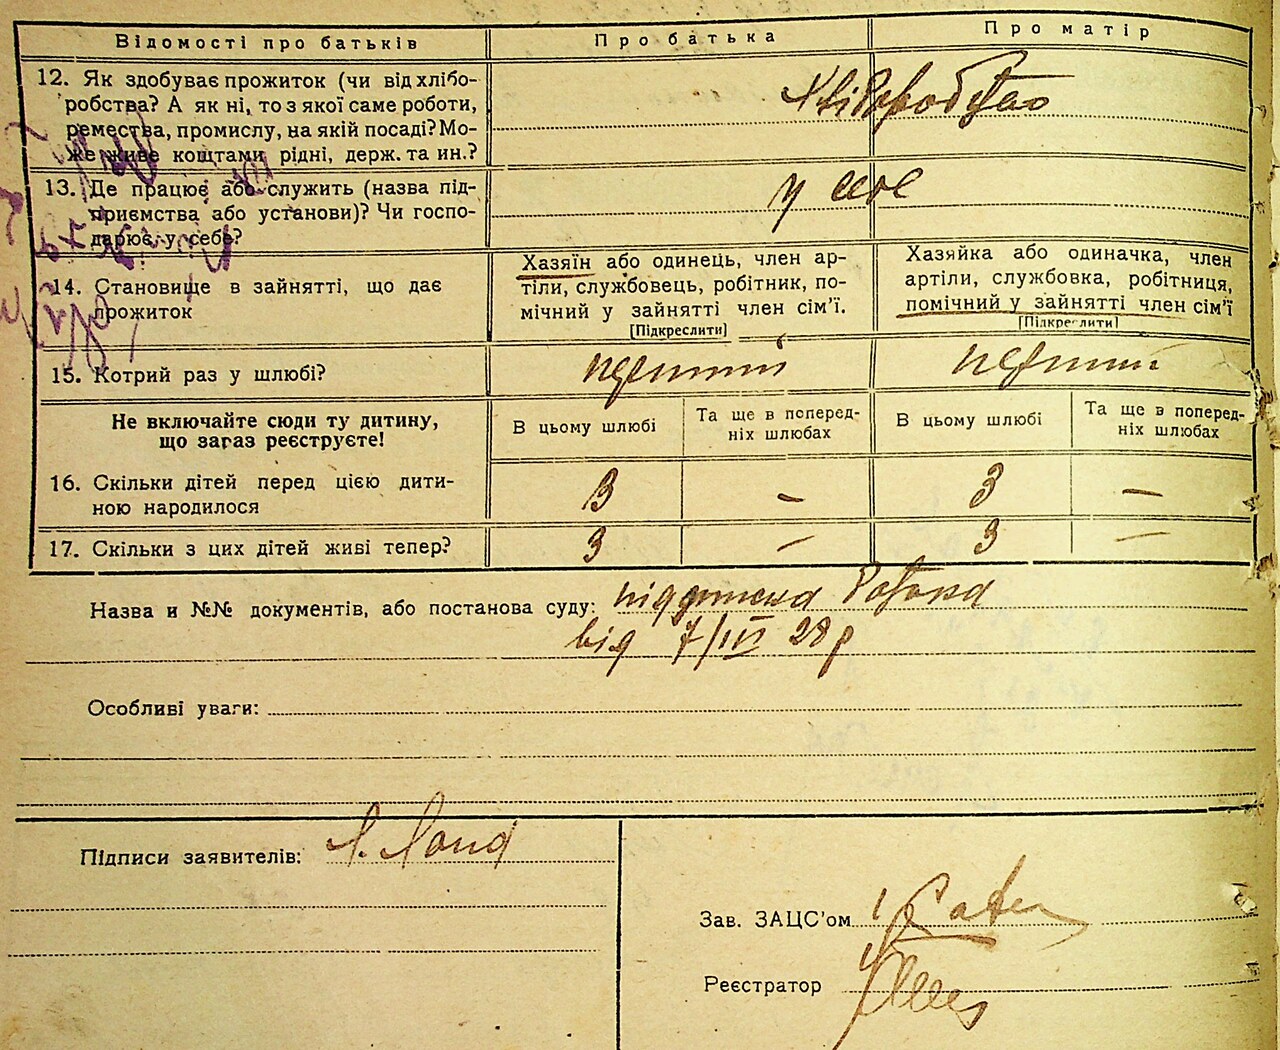 Відомості про батьків
Про батька
Про матір
12. Як здобуває прожиток (чи від хлібо-
робства? А як ні, то з якої саме роботи,
ремества, промислу, на якій посаді? Мо-
же живе коштами рідні, держ. та ин.?
Хліборобство
13. Де працює або служить (назва під-
приємства або установи)? Чи госпо-
дарює у себе?
у себе
14. Становище в зайнятті, що дає
прожиток
Хазяїн або одинець, член ар-
тіли, службовець, робітник, по-
мічний у зайнятті член сім'ї.
[Підкреслити]
Хазяйка або одиначка, член
артіли, службовка, робітниця,
помічний у зайнятті член сім'ї
[Підкреслити]
15. Котрий раз у шлюбі?
перший
перший
Не включайте сюди ту дитину,
що загаз реєструєте!
В цьому шлюбі
Та ще в поперед-
ніх шлюбах
В цьому шлюбі
Та ще в поперед-
ніх шлюбах
16. Скільки дітей перед цією дити-
ною народилося
3 – 3 –
17. Скільки з цих дітей живі тепер?
3 – 3 –
Назва и №№ документів, або постанова суду: підписка
від 7/IV 28 р
Особливі уваги:
Підписи заявителів:
Зав. ЗАЦС'ом
Реєстратор